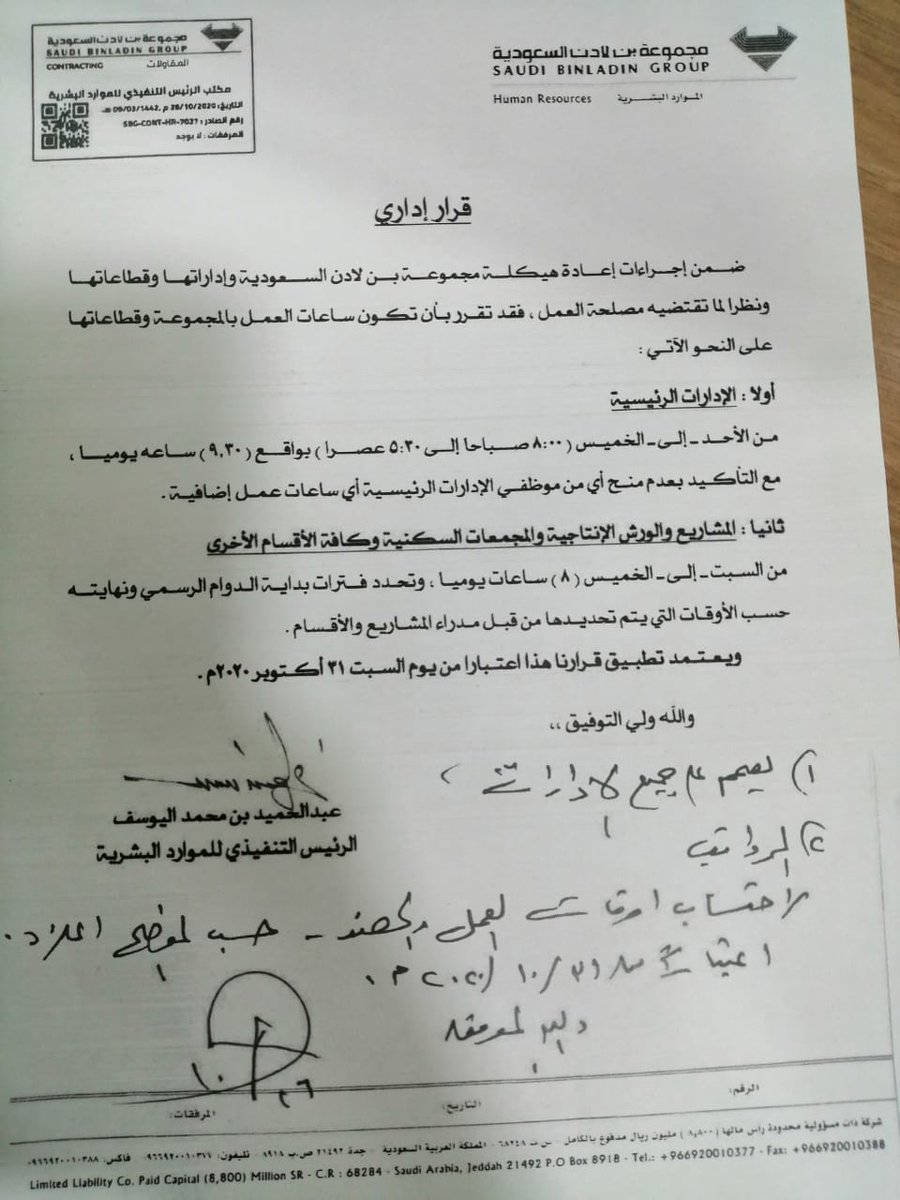 مجموعة بن لادن السعودية
SAUDI BINLADIN GROUP
CONTRACTING المقاولات
مكتب الرئيس التنفيذي للموارد البشرية
التاريخ: 26/10/2020 م, 09/03/1442 هـ
رقم الصادر: SBG-CONT-HR-7027
المرفقات: لا يوجد
مجموعة بن لادن السعودية
SAUDI BINLADIN GROUP
Human Resources الموارد البشرية
قرار إداري
ضمن إجراءات إعادة هيكلة مجموعة بن لادن السعودية وإداراتها وقطاعاتها
ونظرا لما تقتضيه مصلحة العمل ، فقد تقرر بأن تكون ساعات العمل بالمجموعة وقطاعاتها
على النحو الآتي :
أولا : الإدارات الرئيسية
من الأحد - إلى - الخميس ( ٨:٠٠ صباحا إلى ٥:٣٠ عصرا ) بواقع ( ٩,٣٠ ) ساعه يوميا ،
مع التأكيد بعدم منح أي من موظفي الإدارات الرئيسية أي ساعات عمل إضافية .
ثانيا : المشاريع والورش الإنتاجية والمجمعات السكنية وكافة الأقسام الأخرى
من السبت - إلى - الخميس ( ٨ ) ساعات يوميا ، وتحدد فترات بداية الدوام الرسمي ونهايته
حسب الأوقات التي يتم تحديدها من قبل مدراء المشاريع والأقسام .
ويعتمد تطبيق قرارنا هذا اعتبارا من يوم السبت ٣١ أكتوبر ٢٠٢٠م .
والله ولي التوفيق ،،
عبدالحميد بن محمد اليوسف
الرئيس التنفيذي للموارد البشرية
١) يعمم على جميع الادارات
٢) الرواتب
لاحتساب اوقات العمل حسب الموضح اعلاه .
اعتبارا من ٣١/١٠/٢٠٢٠م .
١٠/٢٦
الرقم: التاريخ: المرفقات:
شركة ذات مسؤولية محدودة رأس مالها (٨,٨٠٠) مليون ريال مدفوع بالكامل - س ت ٦٨٢٨٤ - المملكة العربية السعودية - جدة ٢١٤٩٢ ص.ب ٨٩١٨ - تليفون: ٩٦٦٩٢٠٠١٠٣٧٧ - فاكس: ٩٦٦٩٢٠٠١٠٣٨٨
Limited Liability Co. Paid Capital (8,800) Million SR - C.R : 68284 - Saudi Arabia, Jeddah 21492 P.O Box 8918 - Tel.: +966920010377 - Fax: +966920010388